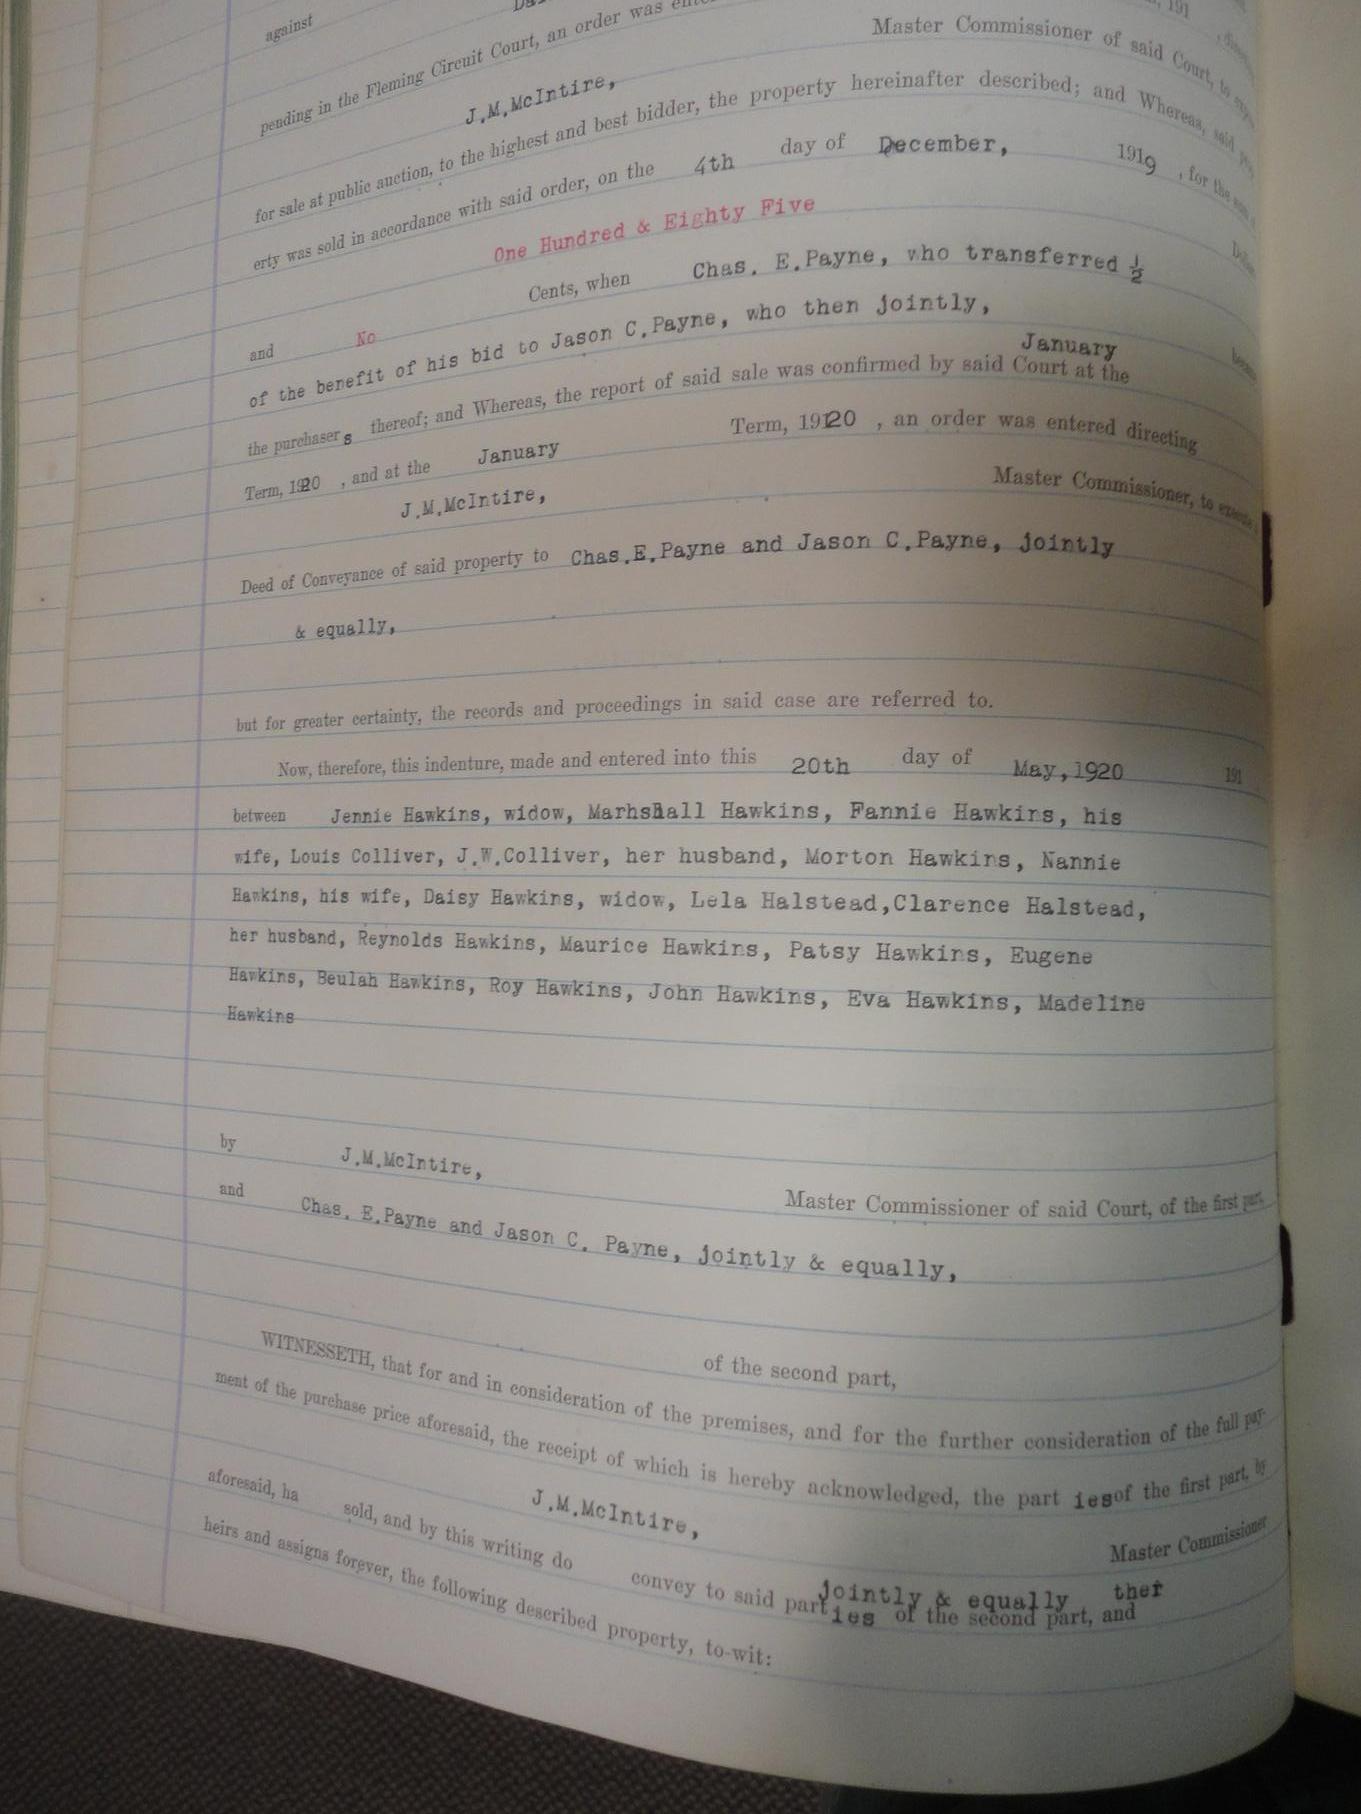 against
pending in the Fleming Circuit Court, an order was
J.M.McIntire, Master Commissioner of said Court, to
for sale at public auction, to the highest and best bidder, the property hereinafter described; and Whereas, said
erty was sold in accordance with said order, on the 4th day of December, 1919 , for the sum
One Hundred & Eighty Five
and No Cents, when Chas. E.Payne, who transferred ½
of the benefit of his bid to Jason C.Payne, who then jointly,
the purchasers thereof; and Whereas, the report of said sale was confirmed by said Court at the January
Term, 1920 , and at the January Term, 19120 , an order was entered directing
J.M.McIntire, Master Commissioner, to execute
Deed of Conveyance of said property to Chas.E.Payne and Jason C.Payne, jointly
& equally,
but for greater certainty, the records and proceedings in said case are referred to.
Now, therefore, this indenture, made and entered into this 20th day of May,1920 191
between Jennie Hawkins, widow, Marhshall Hawkins, Fannie Hawkins, his
wife, Louis Colliver, J.W.Colliver, her husband, Morton Hawkins, Nannie
Hawkins, his wife, Daisy Hawkins, widow, Lela Halstead,Clarence Halstead,
her husband, Reynolds Hawkins, Maurice Hawkins, Patsy Hawkins, Eugene
Hawkins, Beulah Hawkins, Roy Hawkins, John Hawkins, Eva Hawkins, Madeline
Hawkins
by J.M.McIntire, Master Commissioner of said Court, of the first part,
and Chas. E.Payne and Jason C. Payne, jointly & equally,
of the second part,
WITNESSETH, that for and in consideration of the premises, and for the further consideration of the full pay-
ment of the purchase price aforesaid, the receipt of which is hereby acknowledged, the part ies of the first part, by
J.M.McIntire, Master Commissioner
aforesaid, ha sold, and by this writing do convey to said parties of the second part, and jointly & equally ther
heirs and assigns forever, the following described property, to-wit: